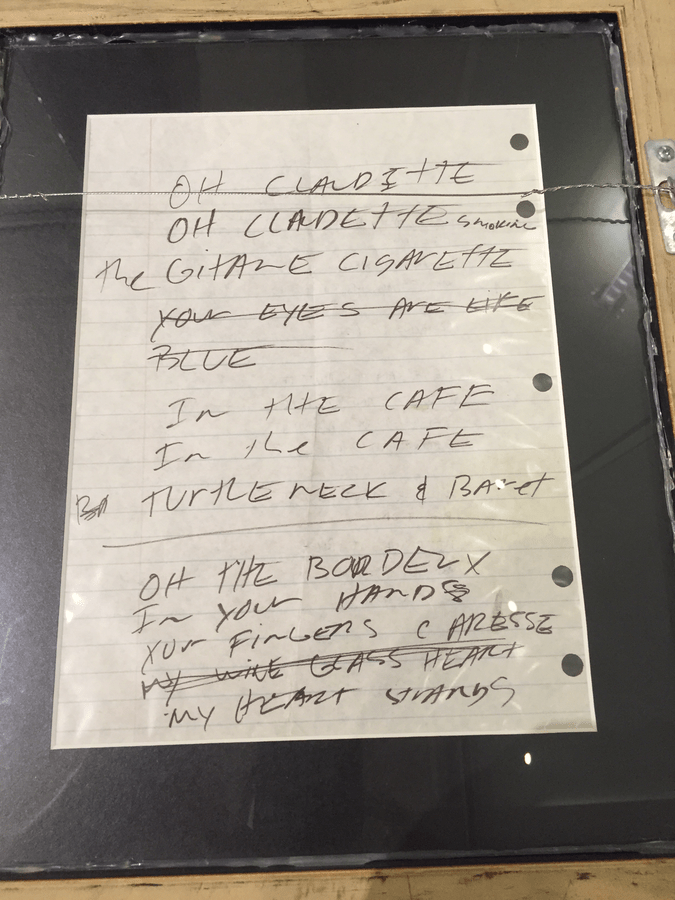 OH CLAUDETTE
OH CLAUDETTE smoking
the GITANE CIGARETTE
YOUR EYES ARE LIKE
BLUE
In tHE CAFE
In the CAFE
TURTLENECK & BARET
OH THE BORDEUX
In YOUR HANDS
YOUR FINGERS CARESSE
MY WINE GLASS HEART
MY HEART STRANDS